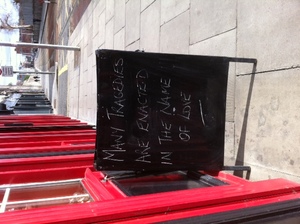 MANY TRAGEDIES
ARE ENACTED
IN THE NAME
OF LOVE